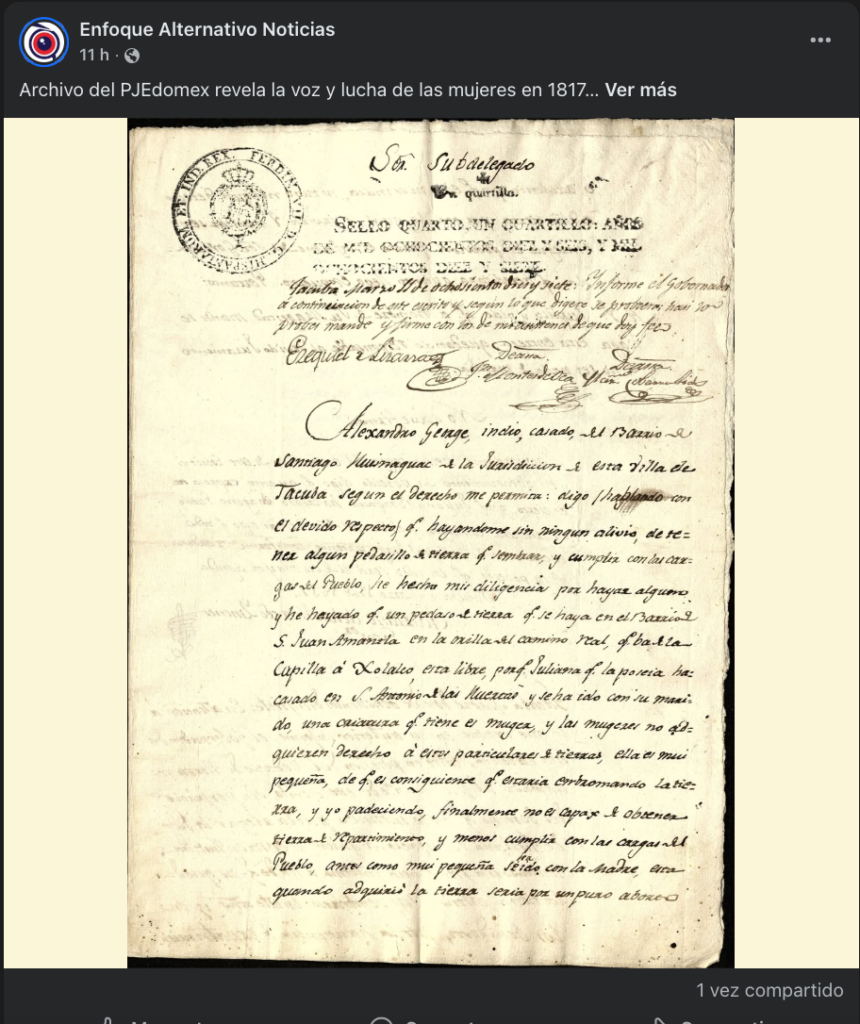 Enfoque Alternativo Noticias
11 h ·
Archivo del PJEdomex revela la voz y lucha de las mujeres en 1817... Ver más
HISPANIARUM ET IND. REX. FERDIN. VII D. G.
Sor. Subdelegado
Un quartillo.
SELLO QUARTO, UN QUARTILLO: AÑOS
DE MIL OCHOCIENTOS DIEZ Y SEIS, Y MIL
OCHOCIENTOS DIEZ Y SIETE.
Tacuba Marzo 11 de ochosientos dies y siete: Informe el Gobernador
á continuacion de este escrito y segun lo que digere se probeera haci lo
probei mande y firmé con los de mi asistencia de que doy fee
Ezequiel Lizarra
Alexandro George, indio, casado, del Barrio de
Santiago Huinaguac de la Jurisdiccion de esta Villa de
Tacuba segun el derecho me permita: digo (hablando con
el devido respecto) q.e hayandome sin ningun alivio, de te=
ner algun pedasillo de tierra q.e sembrar, y cumplir con las car=
gas del Pueblo, he hecho mis diligencia por hayar alguno
y he hayado q.e un pedaso de tierra q.e se haya en el Barrio de
S. Juan Amanela en la orilla del camino real, q.e ba de la
Capilla á Xolalco, esta libre, porq.e Juliana q.e la poseia ha=
casado en S. Antonio de las Huertas y se ha ido con su mari=
do, una criatura q.e tiene es muger, y las mugeres no ad=
quieren derecho á estos particulares de tierras, ella es mui
pequeña, de q.e es consiguiente q.e estaria embromando la tie=
rra, y yo padeciendo, finalmente no es capax de obtener
tierra de repartimiento, y menos cumplir con las cargas del
Pueblo, antes como mui pequeña se ido con la Madre, esta
quando adquirió la tierra seria por un puro
1 vez compartido